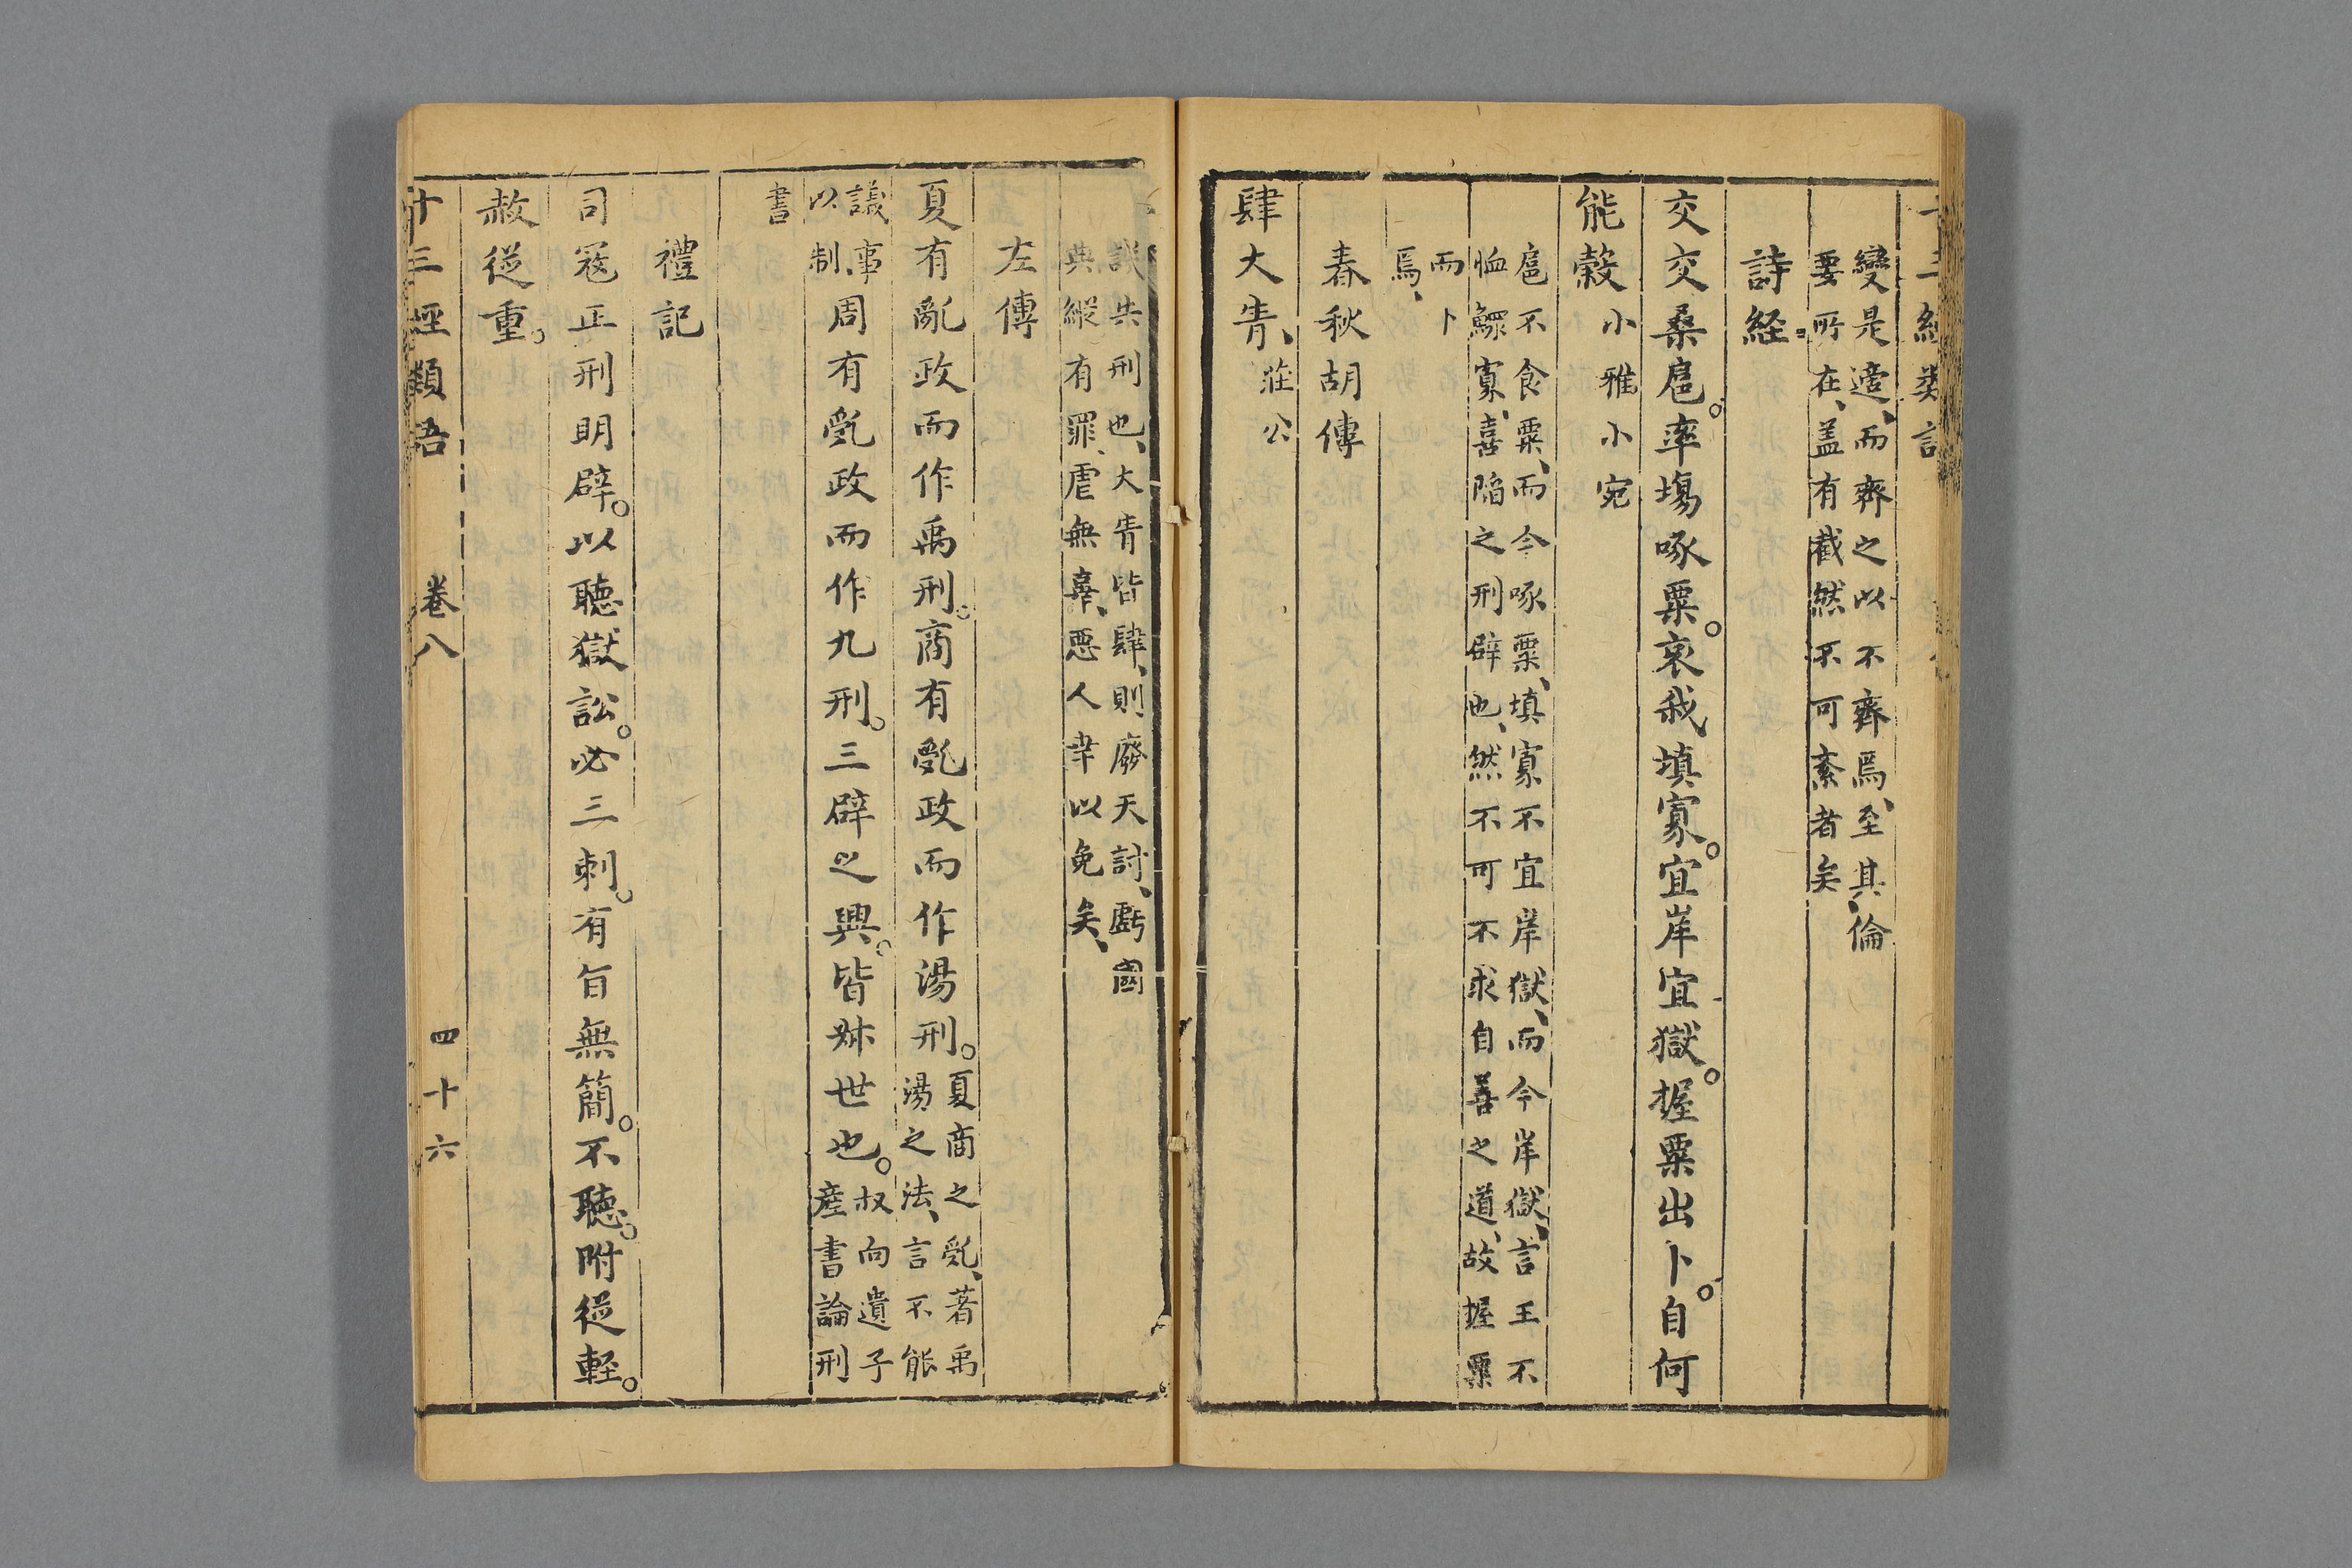 變是適、而齊之以不齊焉、至其倫
要所在、盖有截然不可紊者矣、
詩経
交交桑扈。率塲啄粟。哀我填寡。宜岸宜獄。握粟出卜。自何
能穀 小雅小宛
扈不食粟、而今啄粟、填寡不宜岸獄、而今岸獄、言王不
恤鰥寡、喜陷之刑辟也、然不可不求自善之道、故握粟
而卜
焉、
春秋胡傳
肆大眚、莊公
失刑也、大眚皆肆、則廢天討、虧國
典、縱有罪、虐無辜、惡人幸以免矣、
左傳
夏有亂政而作禹刑。商有亂政而作湯刑。夏商之亂、著禹
湯之法、言不能
議事
以制
周有亂政而作九刑。三辟之興。皆叔世也。叔向遺子
產書論刑
書
禮記
司寇正刑明辟。以聽獄訟。必三刺。有旨無簡。不聽。附從軽。
赦從重。
十三經類語 卷八 四十六